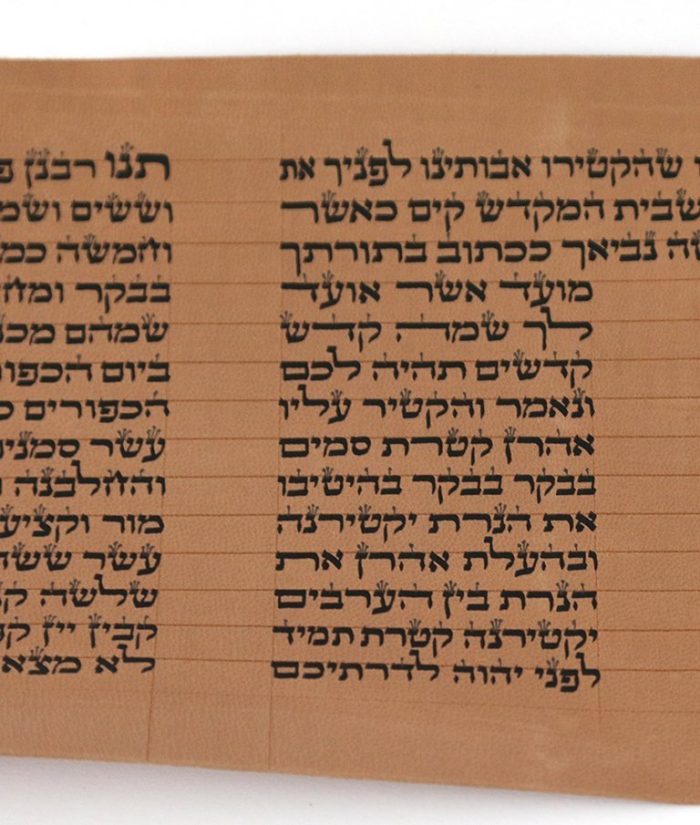 שהקטירו אבותינו לפניך את
שבית המקדש קים כאשר
שה נביאך ככתוב בתורתך
מועד אשר אועד
לך שמה קדש
קדשים תהיה לכם
ונאמר והקטיר עליו
אהרן קטרת סמים
בבקר בבקר בהיטיבו
את הנרת יקטירנה
ובהעלת אהרן את
הנרת בין הערבים
יקטירנה קטרת תמיד
לפני יהוה לדרתיכם
תנו רבנן פ
וששים ושמ
וחמשה כמ
בבקר ומח
שמהם מכנ
ביום הכפור
הכפורים
עשר סמני
והחלבנה
מור וקציע
עשר ששה
שלשה ק
קבין יין ק
לא מצא